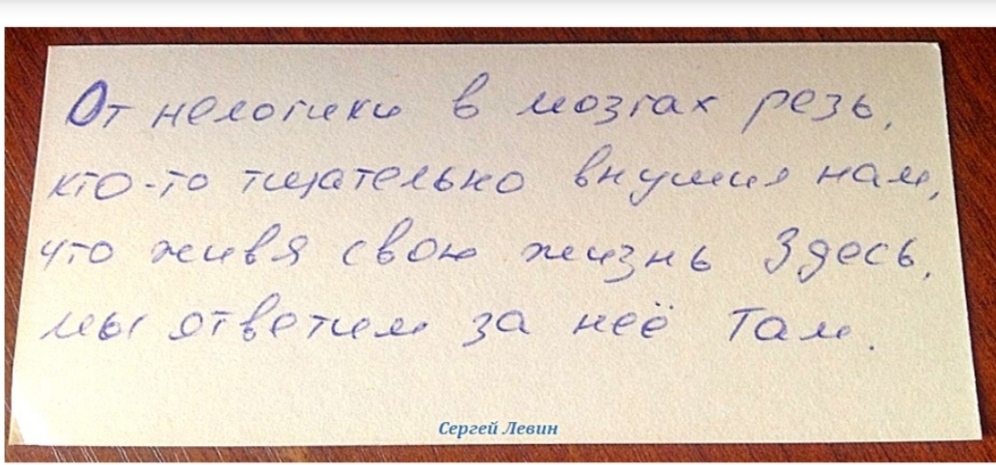 От нелогики в мозгах резь,
кто-то тщательно внушил нам,
что живя свою жизнь Здесь,
мы ответим за неё Там.
Сергей Левин